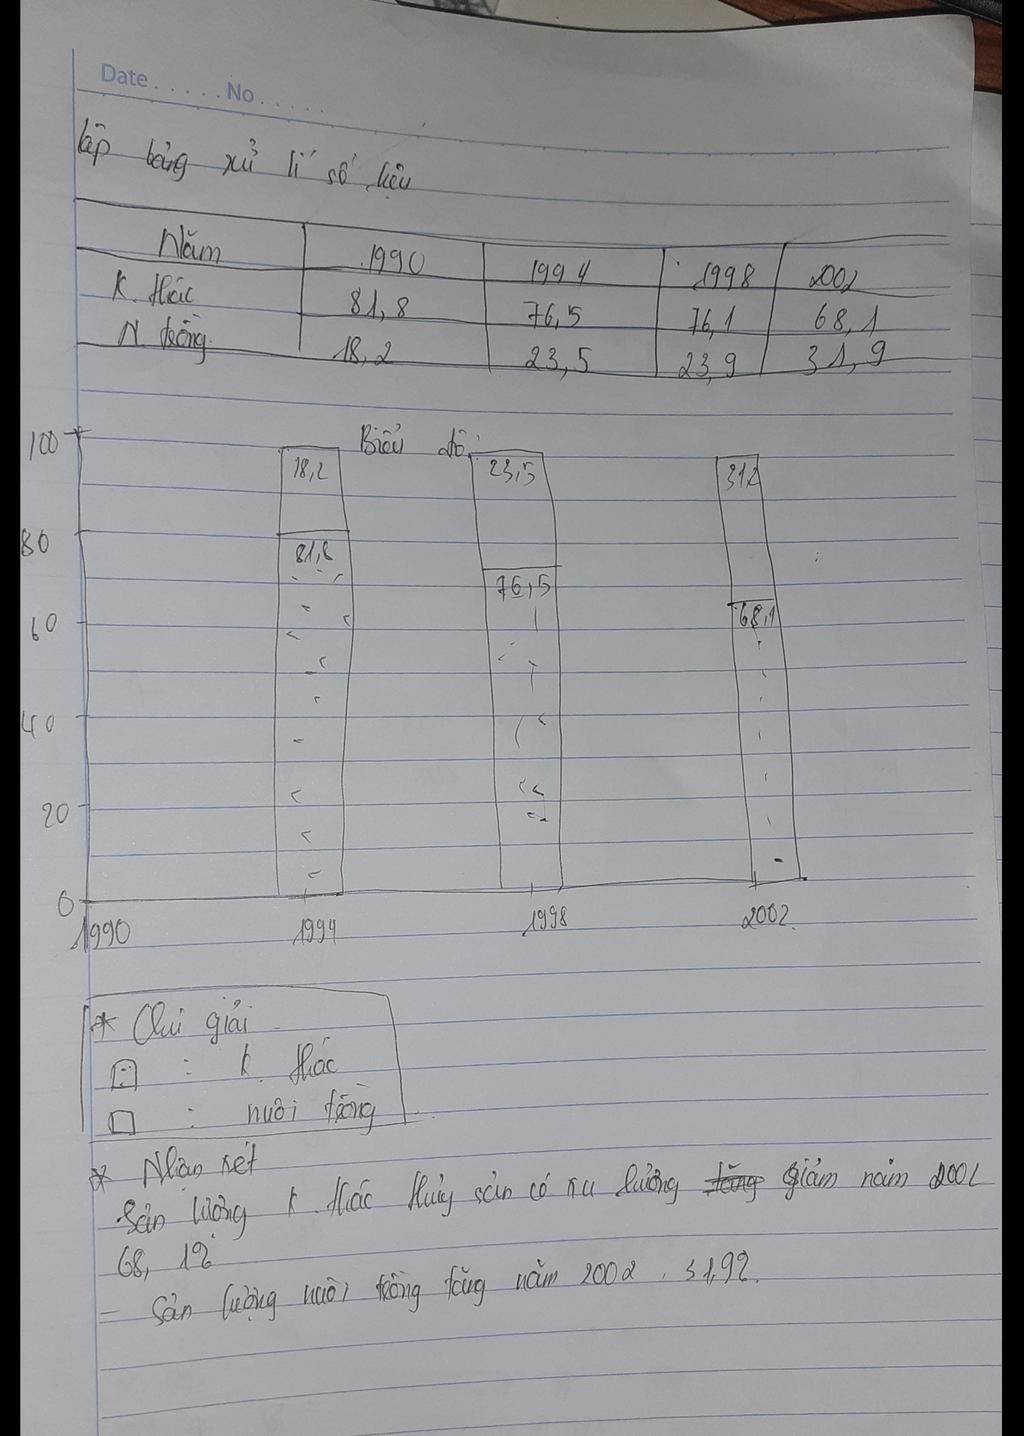 Date......No.....
Lập bảng xử lí số liệu
Năm 1990 1994 1998 2002
K. thác 81,8 76,5 76,1 68,1
N. trồng 18,2 23,5 23,9 31,9
Biểu đồ:
100
18,2 23,5 31,2
80
81,8 76,5
60
68,1
40
20
0
1990 1994 1998 2002
* Chú giải
: K. thác
: nuôi trồng
* Nhận xét
Sản lượng K. thác thủy sản có xu hướng giảm năm 2002
68, 1%
- Sản lượng nuôi trồng tăng năm 2002. 31,9%.